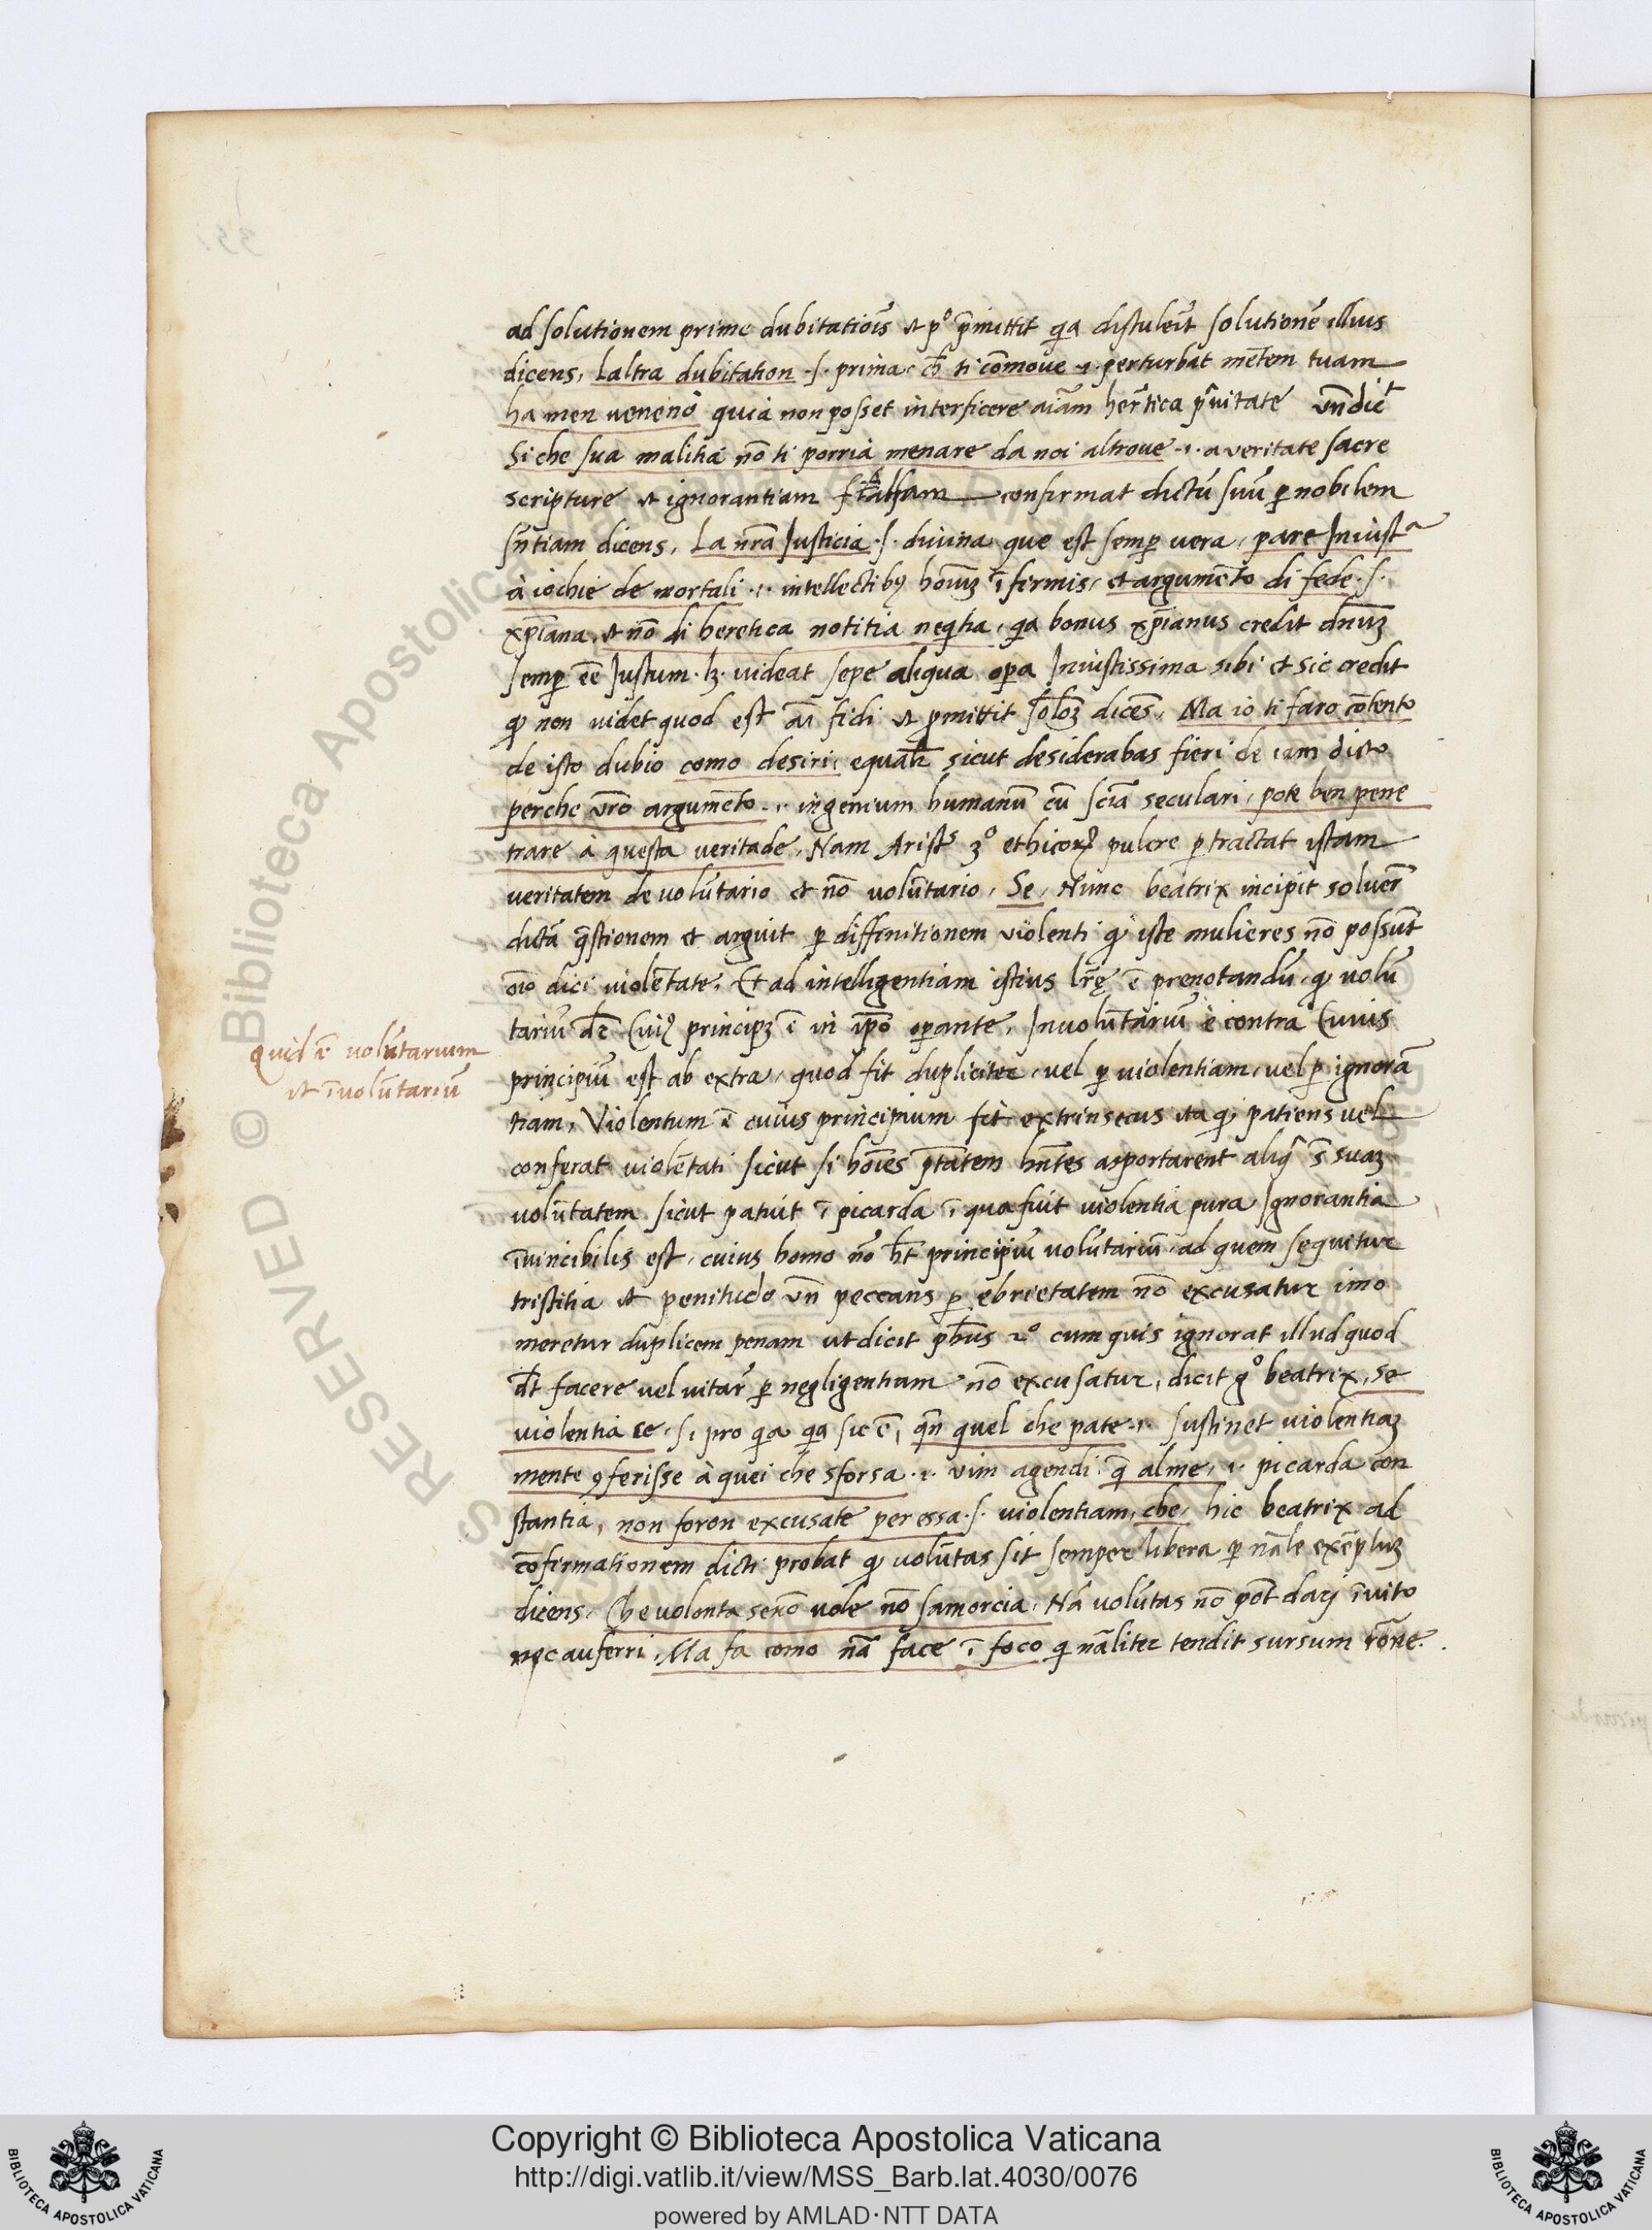 ad solutionem prime dubitatiōis et p° p̄mittit qa distulerit solutionē illius
dicens, Laltra dubitation .s. prima ch̄ ti cōmove .i. perturbat mētem tuam
ha men veneno quia non posset interficere aīam herētica p̄vitate vn̄ dic̄
Si che sua malitia nō ti porria menare da noi altrove .i. a veritate sacre
scripture et ignorantiam falsam confirmat dictū suū p nobilem
sn̄tiam dicens, La nr̄a Justicia .s. divina que est semp vera, pare Iniusta
à iochie de mortali .i. intellectibꝰ homīuꝫ īfirmis, et argumēto di fede .s.
xp̄iana, et nō di heretica notitia neqītia, qa bonus xp̄ianus credit dn̄uꝫ
semp eē Justum. lꝫ. videat sepe aliqua opa Iniustissima sibi et sic credit
q̧ non videt quod est fidi et p̄mittit dicēs, Ma io ti faro cōtento
de isto dubio como desiri, sicut desiderabas fieri de iam dicto
perche vr̄o argumēto .i. ingenium humanū cū scīa seculari, pote ben pene
trare à questa veritade, Nam Arist̄s 3° ethicoꝝ pulcre ptractat istam
veritatem de volūtario et nō volūtario, Se, Nunc beatrix incipit solver̄
dictā q̄stionem et arguit p diffinitionem violenti q̧ iste mulieres nō possūt
oīo dici violētate, Et ad intelligentiam istius lr̄ę ē prenotandū, q̧ volū
tariū dr̄ Cuiꝰ principꝫ ē in ip̄o opante, Involūtariū è contra Cuius
principiū est ab extra, quod fit dupliciter, vel p violentiam, vel p ignorā
tiam, Violentum ē cuius principium fit extrinsecus ita q̧ patiens vel
conferat violētati sicut si hoīes p̄tatem hn̄tes asportarent aliq̄ s̄ suaꝫ
volūtatem sicut patuit ī picarda ī qua fuit violentia pura Ignorantia
īvincibilis est, cuius homo nō ht̄ principiū volūtariū, ad quem sequitur
tristitia et penitudo vn̄ peccans p ebrietatem nō excusatur imo
meretur duplicem penam ut dicit ph̄us 2° cum quis ignorat illud quod
dt̄ facere vel vitar̄ p negligentiam nō excusatur, dicit g° beatrix, Se
violentia se .s. pro qa qa sic ē, qn̄ quel che pate .i. sustinet violentiaꝫ
mente ꝯferisse à quei che sforsa .i. vim agendi. q̄ alme, .i. picarda con
stantia, non foron excusate per essa .s. violentiam, che, hic beatrix ad
cōfirmationem dicti probat q̧ volūtas sit semper libera p nāle exēpluꝫ
dicens, Che volonta senō vole nō samorcia, Nā volūtas nō pōt dari īvito
nec auferri, Ma fa como nā face ī foco q̧ nāliter tendit sursum rōne.
Quid ē volūtarium
et īvolūtariū
Copyright © Biblioteca Apostolica Vaticana
http://digi.vatlib.it/view/MSS_Barb.lat.4030/0076
powered by AMLAD·NTT DATA
BIBLIOTECA APOSTOLICA VATICANA
BIBLIOTECA APOSTOLICA VATICANA